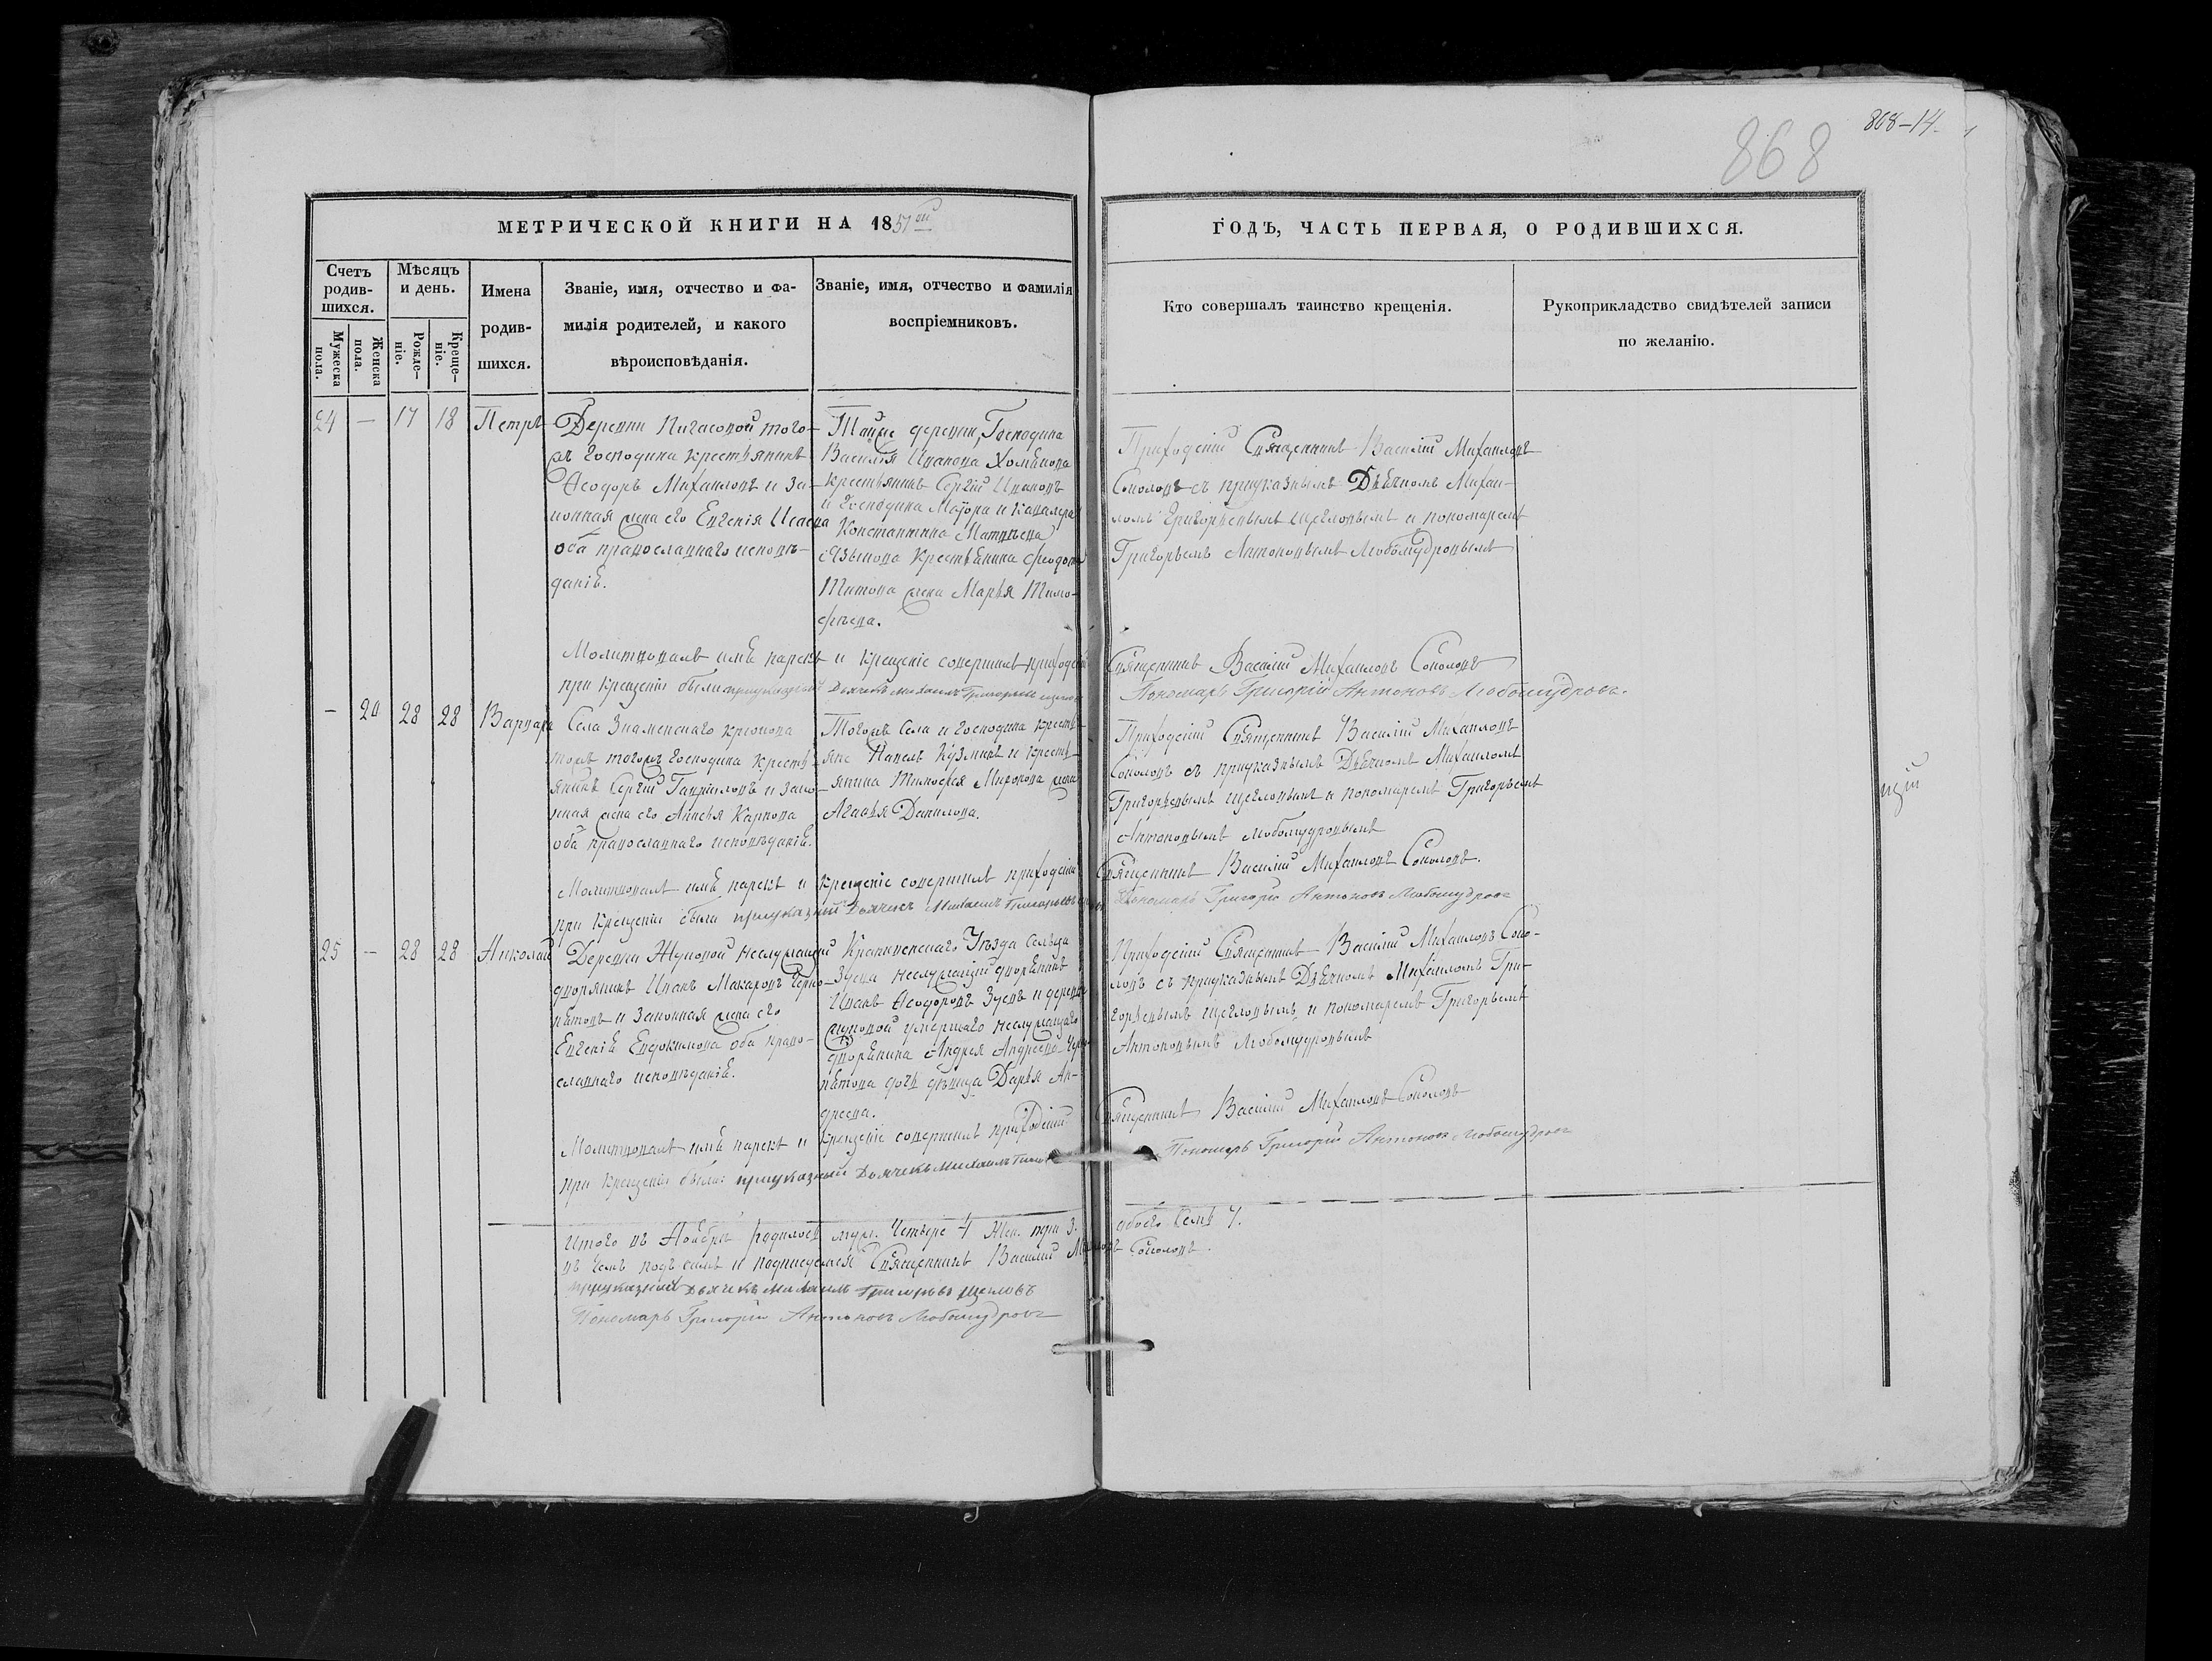 868
868-14
МЕТРИЧЕСКОЙ КНИГИ НА 1851ый
ГОДЪ, ЧАСТЬ ПЕРВАЯ, О РОДИВШИХСЯ.
Счетъ родив-шихся.
Мужеска пола.
Женска пола.
Мѣсяцъ и день.
Рожде-ніе.
Креще-ніе.
Имена родив-шихся.
Званіе, имя, отчество и фа-
милія родителей, и какого
вѣроисповѣданія.
Званіе, имя, отчество и фамилія
воспріемниковъ.
Кто совершалъ таинство крещенія.
Рукоприкладство свидѣтелей записи
по желанію.
24 — 17 18 Петръ
Деревни Пигасовой того-
жъ Господина крестьянинъ
Ѳеодоръ Михаиловъ и за-
конная жена его Евгенія Исаева
оба православнаго исповѣ-
данія.
Тойже деревни, Господина
Василія Иванова Хомякова
крестьянинъ Сергій Ивановъ
и Господина Маіора и Кавалера
Константина Матвѣева
Языкова крестьянина Федота
Титова жена Марья Тимо-
фѣева.
Приходскій Священникъ Василій Михаиловъ
Соколовъ съ приуказнымъ Дьячкомъ Михаи-
ломъ Григорьевымъ Щегловымъ и пономаремъ
Григорьемъ Антоновымъ Любомудровымъ
Молитвовалъ имя нарекъ и крещеніе совершилъ приходскій Священникъ Василій Михаиловъ Соколовъ
при крещеніи были приуказный Дьячекъ Михаилъ Григорьевъ Щегловъ
Пономарь Григорій Антоновъ Любомудровъ.
— 20 28 28 Варвара
Села Знаменскаго Крюкова
тожъ тогожъ Господина кресть-
янинъ Сергій Гавриловъ и зако-
нная жена его Анисья Карпова
оба православнаго исповѣданія.
Тогожъ Села и Господина кресть-
яне Павелъ Кузминъ и кресть-
янина Тимофея Миронова жена
Агафья Данилова.
Приходскій Священникъ Василій Михаиловъ
Соколовъ съ приуказнымъ Дьячкомъ Михаиломъ
Григорьевымъ Щегловымъ и пономаремъ Григорьемъ
Антоновымъ Любомудровымъ
Молитвовалъ имя нарекъ и крещеніе совершилъ приходскій Священникъ Василій Михаиловъ Соколовъ.
при крещеніи были приуказный Дьячекъ Михаилъ Григорьевъ
Пономарь Григорій Антоновъ Любомудровъ
25 — 28 28 Николай
Деревни Жуковой неслужащій
дворянинъ Иванъ Макаровъ Черно-
пятовъ и законная жена его
Евгенія Евдокимова оба право-
славнаго исповѣданія.
Крапивенскаго Уѣзда Сельца
Зуева неслужащій дворянинъ
Иванъ Ѳеодоровъ Зуевъ и деревни
Жуковой умершаго неслужащаго
дворянина Андрея Андреева Черно-
пятова дочь дѣвица Дарья Ан-
дреева.
Приходскій Священникъ Василій Михаиловъ Соко-
ловъ съ приуказнымъ Дьячкомъ Михаиломъ Гри-
горьевымъ Щегловымъ и пономаремъ Григорьемъ
Антоновымъ Любомудровымъ
Молитвовалъ имя нарекъ и крещеніе совершилъ приходскій Священникъ Василій Михаиловъ Соколовъ
при крещеніи были: приуказный Дьячекъ Михаилъ
Пономарь Григорій Антоновъ Любомудровъ
Итого въ Ноябрѣ родилось муж. Четыре 4 Жен. три 3. обоего Семь 7.
въ чемъ подъ симъ и подписуемся Священникъ Василій Михаиловъ Соколовъ.
приуказный Дьячекъ Михаилъ Григорьевъ Щегловъ
Пономарь Григорій Антоновъ Любомудровъ